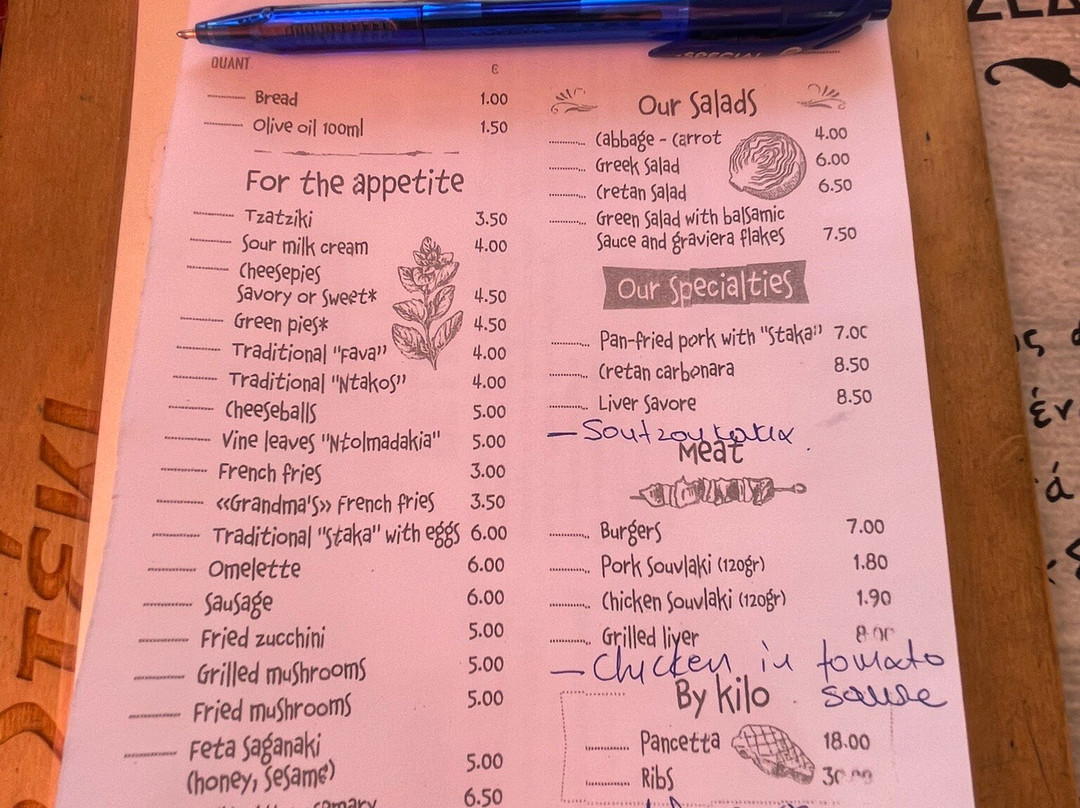 SPECIAL
QUANT.
€
Bread 1.00
Olive oil 100ml 1.50
For the appetite
Tzatziki 3.50
Sour milk cream 4.00
Cheesepies
Savory or Sweet* 4.50
Green pies* 4.50
Traditional "Fava" 4.00
Traditional "Ntakos" 4.00
Cheeseballs 5.00
Vine leaves "Ntolmadakia" 5.00
French fries 3.00
«Grandma's» French fries 3.50
Traditional "Staka" with eggs 6.00
Omelette 6.00
Sausage 6.00
Fried zucchini 5.00
Grilled mushrooms 5.00
Fried mushrooms 5.00
Feta Saganaki
(honey, Sesame) 5.00
6.50
Our Salads
Cabbage - Carrot 4.00
Greek Salad 6.00
Cretan Salad 6.50
Green Salad with balsamic
Sauce and graviera flakes 7.50
Our Specialties
Pan-fried pork with "Staka" 7.00
Cretan carbonara 8.50
Liver Savore 8.50
— Soutzoukakia
Meat
Burgers 7.00
Pork Souvlaki (120gr) 1.80
Chicken Souvlaki (120gr) 1.90
Grilled liver 8.00
— Chicken in tomato
sause
By kilo
Pancetta 18.00
Ribs 30.00